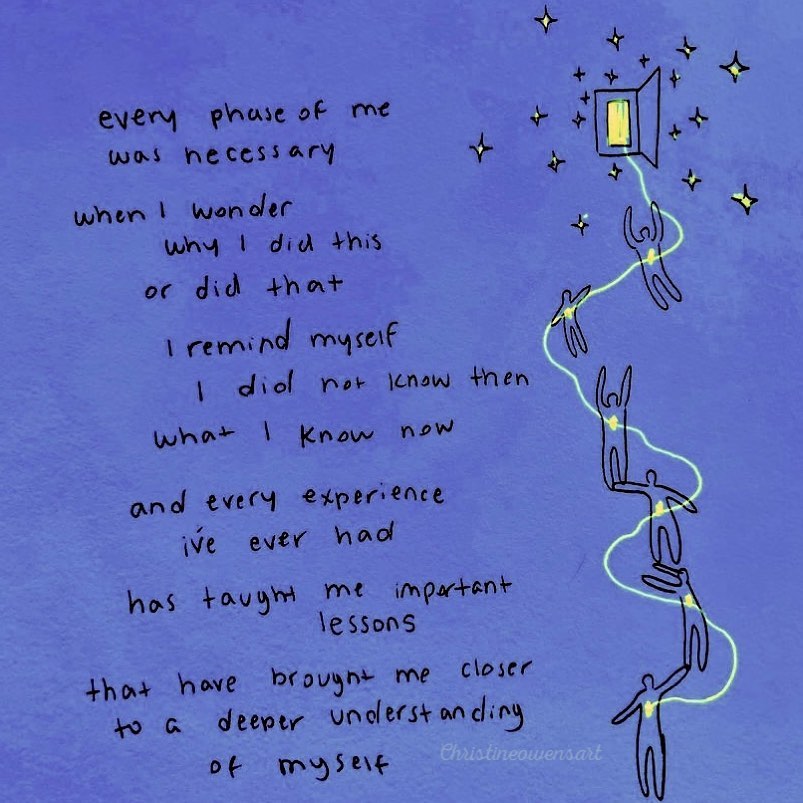 every phase of me
was necessary
when I wonder
why I did this
or did that
I remind myself
I did not know then
what I know now
and every experience
i've ever had
has taught me important
lessons
that have brought me closer
to a deeper understanding
of myself
Christineowensart